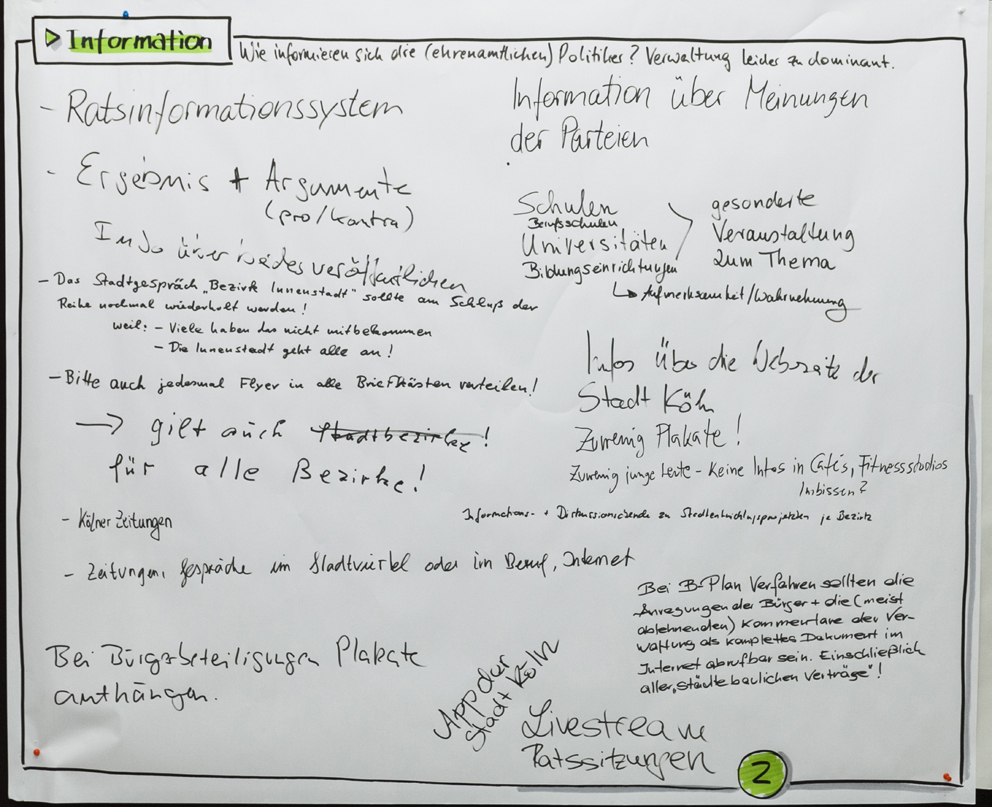 Information
Wie informieren sich die (ehrenamtlichen) Politiker? Verwaltung leider zu dominant.
- Ratsinformationssystem
- Ergebnis + Argumente
(pro/kontra)
Info über beides veröffentlichen
- Das Stadtgespräch „Bezirk Innenstadt" sollte am Schluß der
Reihe nochmal wiederholt werden!
weil: - Viele haben das nicht mitbekommen
- Die Innenstadt geht alle an!
- Bitte auch jedesmal Flyer in alle Briefkästen verteilen!
→ gilt auch Stadtbezirke!
für alle Bezirke!
- Kölner Zeitungen
- Zeitungen, Gespräche im Stadtviertel oder im Beruf, Internet
Bei Bürgerbeteiligungen Plakate
aufhängen.
Information über Meinungen
der Parteien
Schulen
Berufsschulen
Universitäten
Bildungseinrichtungen
gesonderte
Veranstaltung
zum Thema
↳ Aufmerksamkeit/Wahrnehmung
Infos über die Webseite der
Stadt Köln
Zuwenig Plakate!
Zuwenig junge Leute - Keine Infos in Cafés, Fitnessstudios
Imbissen?
Informations- + Diskussionsabende zu Stadtentwicklungsprojekten je Bezirk
Bei B-Plan Verfahren sollten die
Anregungen der Bürger + die (meist
ablehnenden) Kommentare der Ver-
waltung als komplettes Dokument im
Internet abrufbar sein. Einschließlich
aller „Städtebaulichen Verträge"!
App der
Stadt Köln
Livestream
Ratssitzungen
2